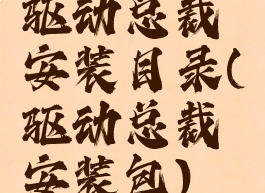 驱动总裁
安装目录(
驱动总裁
安装包)